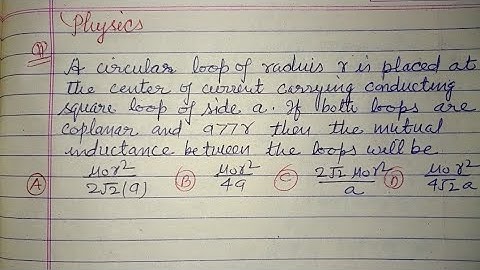 Physics
Q A circular loop of raduis r is placed at
the center of current carrying conducting
square loop of side a. If both loops are
coplanar and a77r then the mutual
inductance between the loops will be
A μ0r²/2√2(a) B μ0r²/4a C 2√2 μ0r²/a D μ0r²/4√2 a